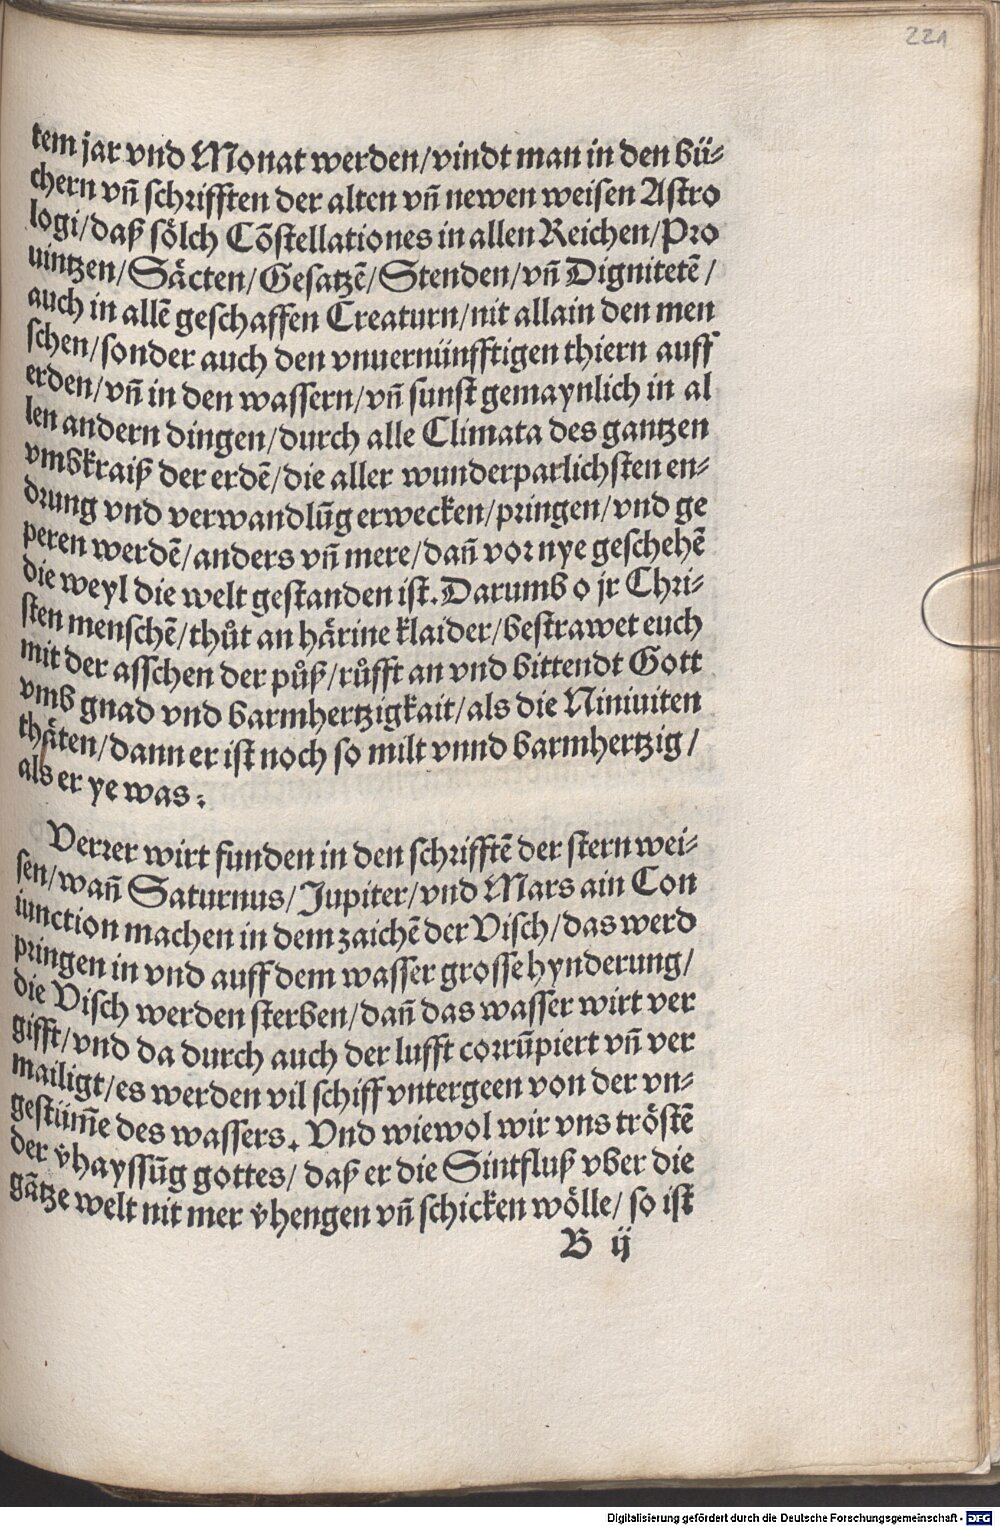 221
tem jar vnd Monat werden/vindt man in den bü⸗
chern vñ schrifften der alten vñ newen weisen Astro
logi/daß sölch Cõstellationes in allen Reichen/Pro
uintzen/Säcten/Gesatzẽ/Stenden/vñ Dignitetẽ/
auch in allẽ geschaffen Creaturn/nit allain den men
schen/sonder auch den vnuernünfftigen thiern auff
erden/vñ in den wassern/vñ sunst gemaynlich in al
len andern dingen/durch alle Climata des gantzen
vmbkraiß der erdẽ/die aller wunderparlichsten en⸗
drung vnd verwandlũg erwecken/pringen/vnd ge
peren werdẽ/anders vñ mere/dañ vor nye geschehẽ
die weyl die welt gestanden ist. Darumb o jr Chri⸗
sten menschẽ/thůt an härine klaider/bestrawet euch
mit der asschen der půß/růfft an vnd bittendt Gott
vmb gnad vnd barmhertzigkait/als die Niniuiten
thäten/dann er ist noch so milt vnnd barmhertzig/
als er ye was:
Verrer wirt funden in den schrifftẽ der stern wei⸗
sen/wañ Saturnus/Jupiter/vnd Mars ain Con
iunction machen in dem zaichẽ der Visch/das werd
pringen in vnd auff dem wasser grosse hynderung/
die Visch werden sterben/dañ das wasser wirt ver
gifft/vnd da durch auch der lufft corrũpiert vñ ver
mailigt/es werden vil schiff vntergeen von der vn⸗
gestüm̃e des wassers. Vnd wiewol wir vns tröstẽ
der v̈hayssũg gottes/daß er die Sintfluß vber die
gãtze welt nit mer v̈hengen vñ schicken wölle/so ist
B ij
Digitalisierung gefördert durch die Deutsche Forschungsgemeinschaft - DFG